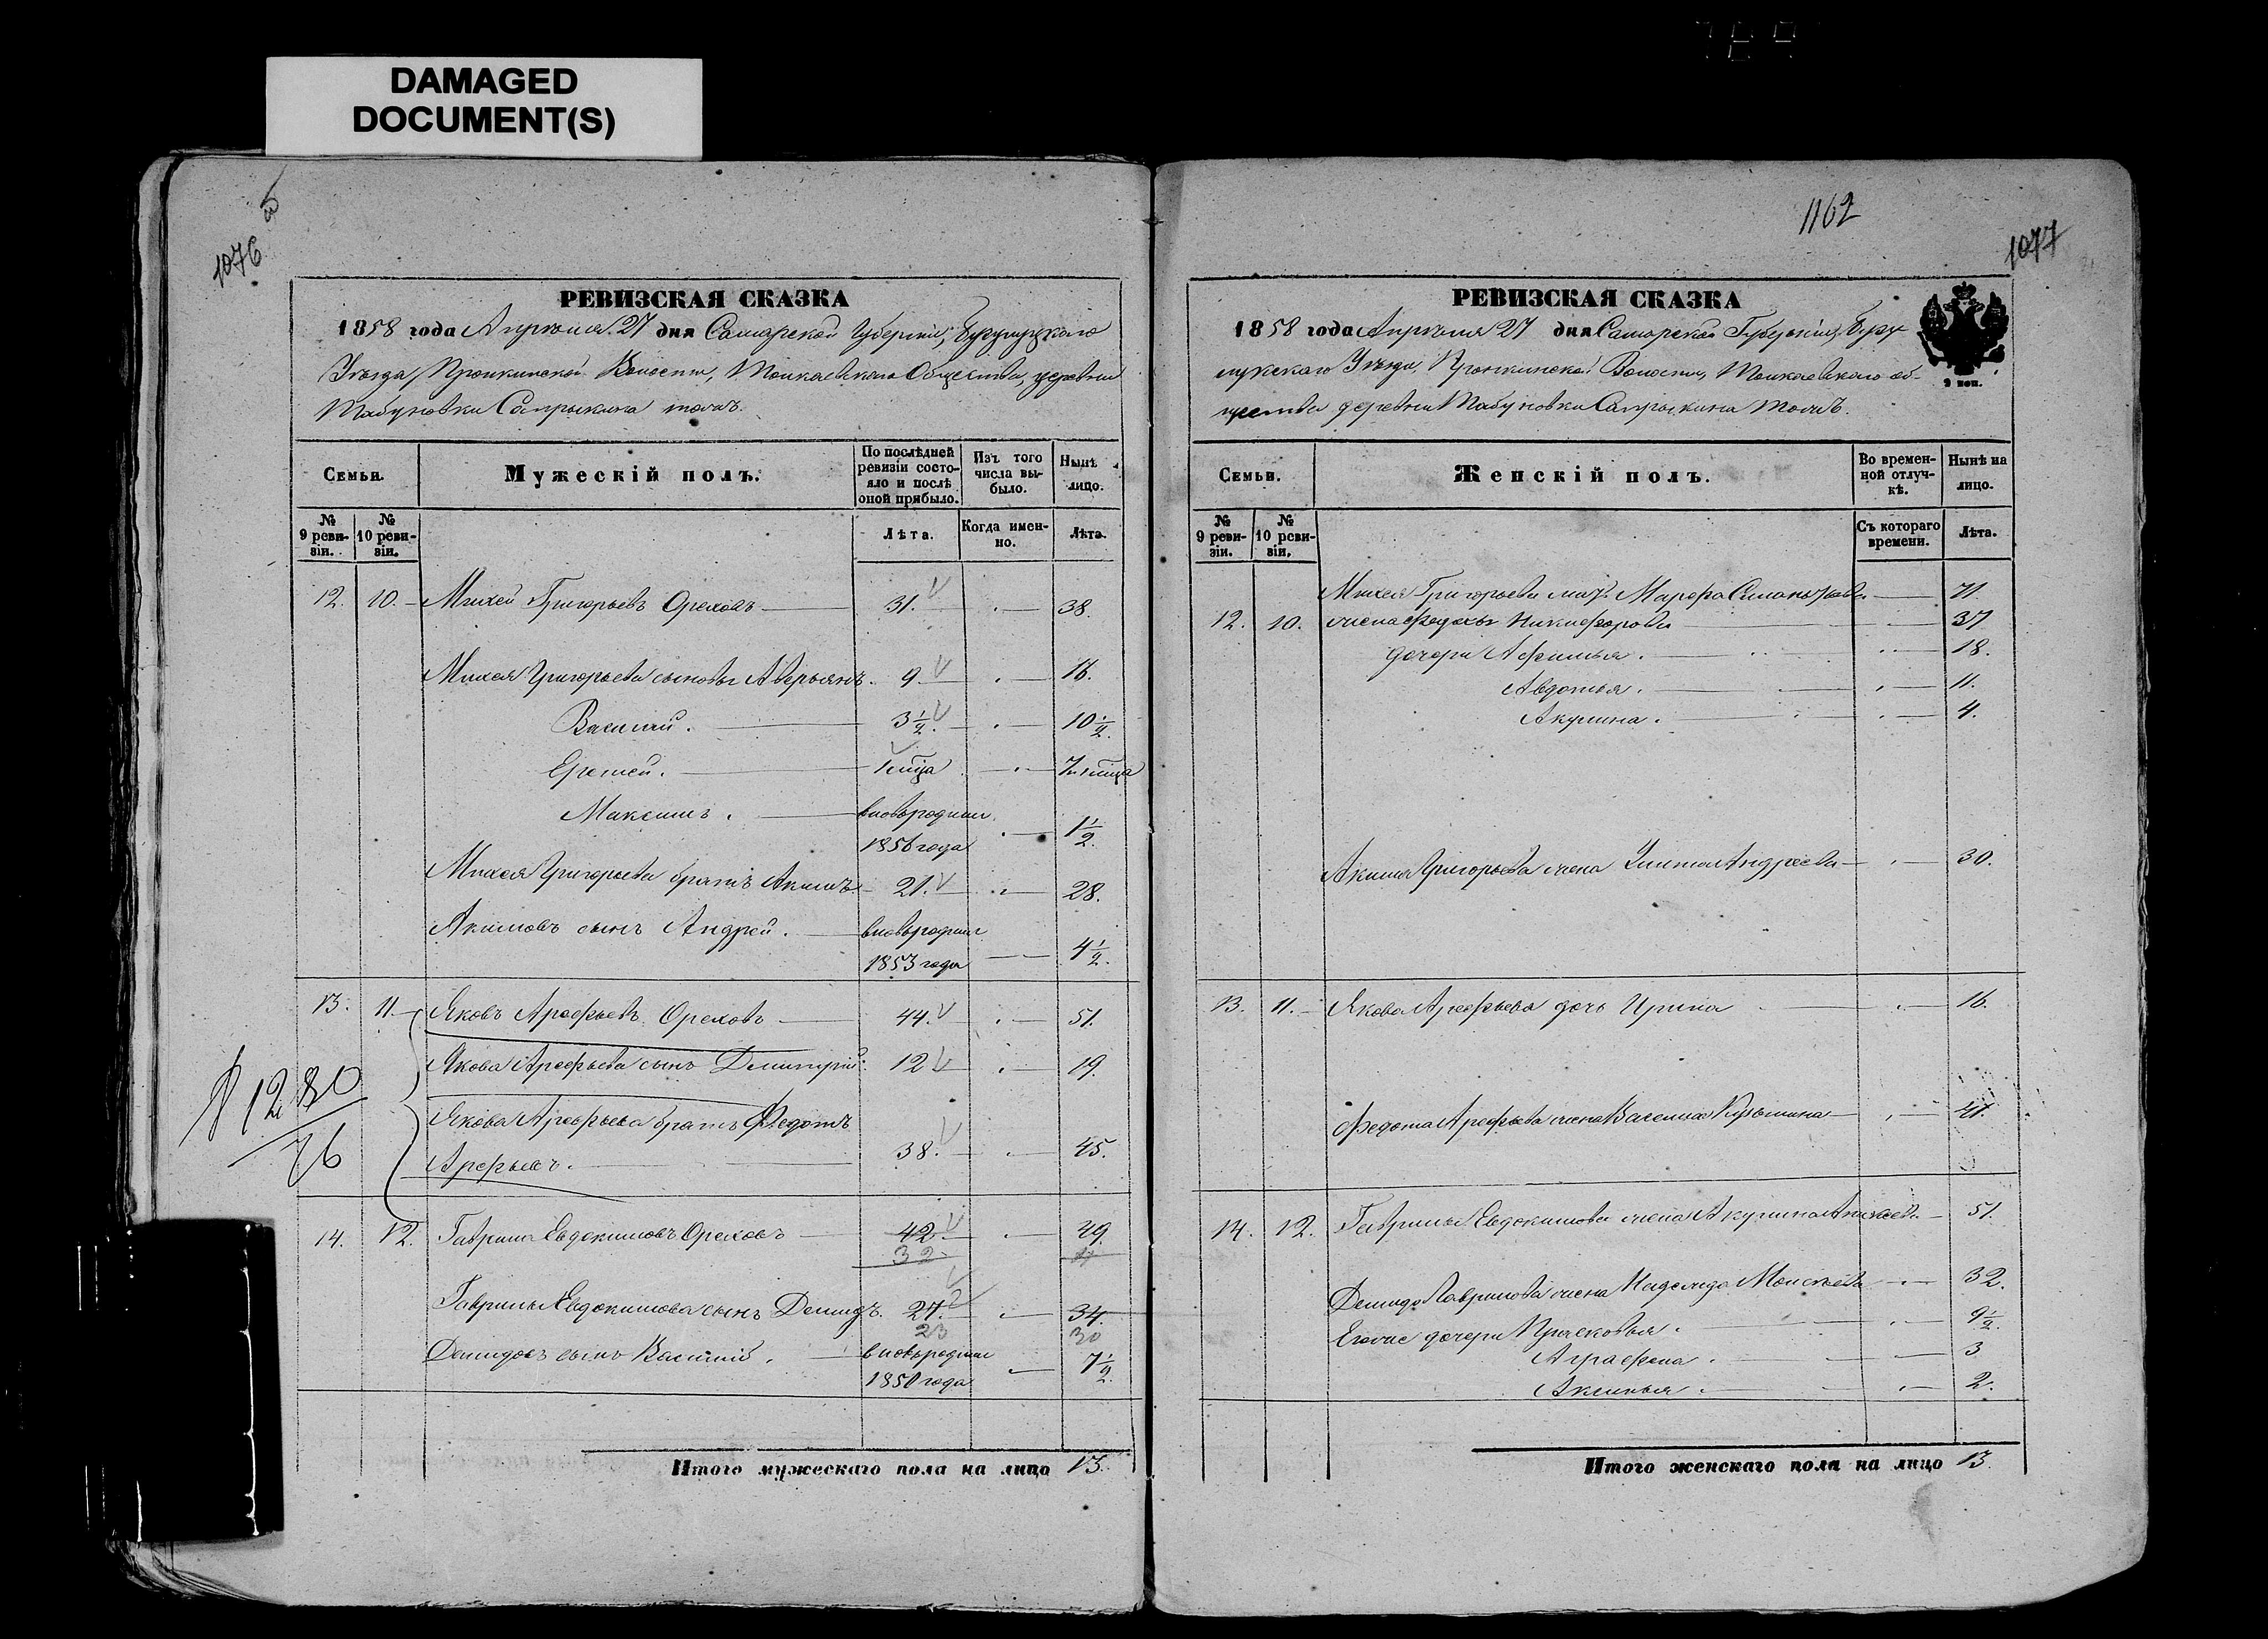 DAMAGED
DOCUMENT(S)
1076
РЕВИЗСКАЯ СКАЗКА
1858 года Апреля 27 дня Самарской Губернiи,
Уѣзда, Пронкинской Волости, Токаевского Общества, деревни
Табуновки Сапрыкина тожъ.
Семьи.
Мужескiй полъ.
По послѣдней ревизiи состо-
яло и послѣ
оной прибыло.
Изъ того
числа вы-
было.
Нынѣ
лицо.
№
9 реви-
зiи.
№
10 реви-
зiи.
Лѣта.
Когда имен-
но.
Лѣта.
12. 10. Михей Григорьевъ Ореховъ 31. 38.
Михея Григорьева сыновья Аверьянъ. 9. 16.
Василий. 3 1/2. 10 1/2.
Еремей.
Максимъ. вновьрожден
1856 года 1 1/2.
Михея Григорьева братъ Акимъ 21. 28.
Акимовъ сынъ Андрей. вновьрожден
1853 года 4 1/2.
13. 11. Яковъ Арефьевъ Ореховъ 44. 51.
Якова Арефьева сынъ Димитрiй. 12 19.
Якова Арефьева братъ Федотъ
Арефьевъ. 38. 45.
№ 1280
76
14. 12. Гаврила Евдокимовъ Ореховъ 42. 49.
32.
Гаврилы Евдокимова сынъ Демидъ. 27. 34.
23 30
Демидовъ сынъ Василiй. вновьрожден
1850 года 7 1/2.
Итого мужескаго пола на лицо 13.
1162
1077
РЕВИЗСКАЯ СКАЗКА
1858 года Апреля 27 дня Самарской Губернiи, Бузу
лукского Уѣзда, Пронкинской Волости, Токаевского об-
щества деревни Табуновки Сапрыкина тожъ.
9 коп.
Семьи.
Женскiй полъ.
Во времен-
ной отлуч-
кѣ.
Нынѣ на
лицо.
№
9 реви-
зiи.
№
10 реви-
зiи.
Съ котораго
времени.
Лѣта.
Михея Григорьева мать Марфа 71
12. 10. жена Федосья Никифорова 37
дочери Афимья. 18.
Авдотья. 11.
Акулина. 4.
Акима Григорьева жена Улита Андреева 30.
13. 11. Якова Арефьева дочь Ирина 16.
Федота Арефьева жена Василиса Кузьмина 41.
14. 12. Гаврилы Евдокимова жена Акулина 51.
Демида Гаврилова жена Надежда Моисеева 32.
Его же дочери Прасковья. 9 1/2.
Аграфена. 3
Аксинья. 2.
Итого женскаго пола на лицо 13.